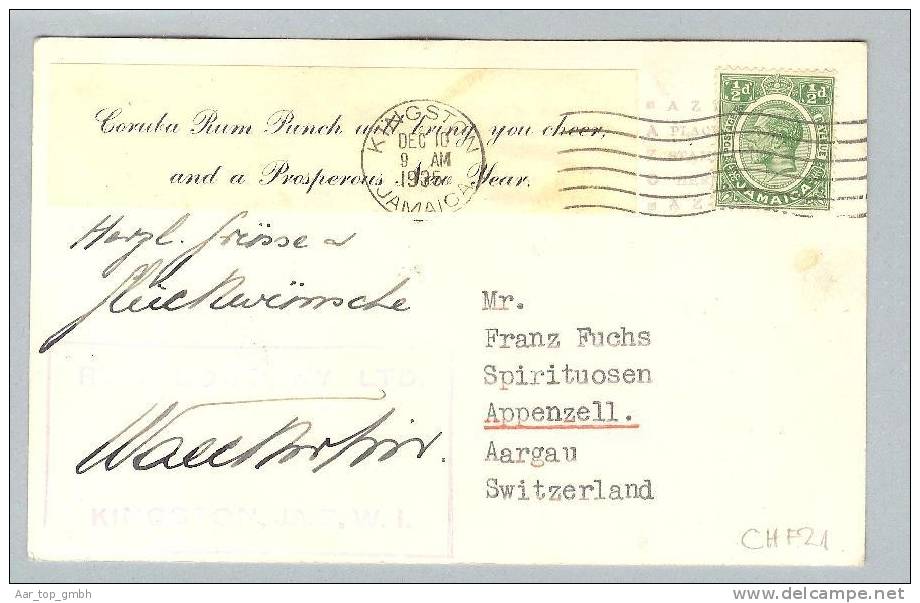 Coruba Rum Punch will bring you cheer,
and a Prosperous New Year.
KINGSTON
DEC 10
9 AM
1935
JAMAICA
A Z
A PLAC
A Z
½d ½d
POSTAGE REVENUE
JAMAICA
Herzl. Grüsse u
Glückwünsche
LTD.
KINGSTON, JA. B.W.I.
Mr.
Franz Fuchs
Spirituosen
Appenzell.
Aargau
Switzerland
CHF21
Aar_top_gmbh
www.delcampe.net